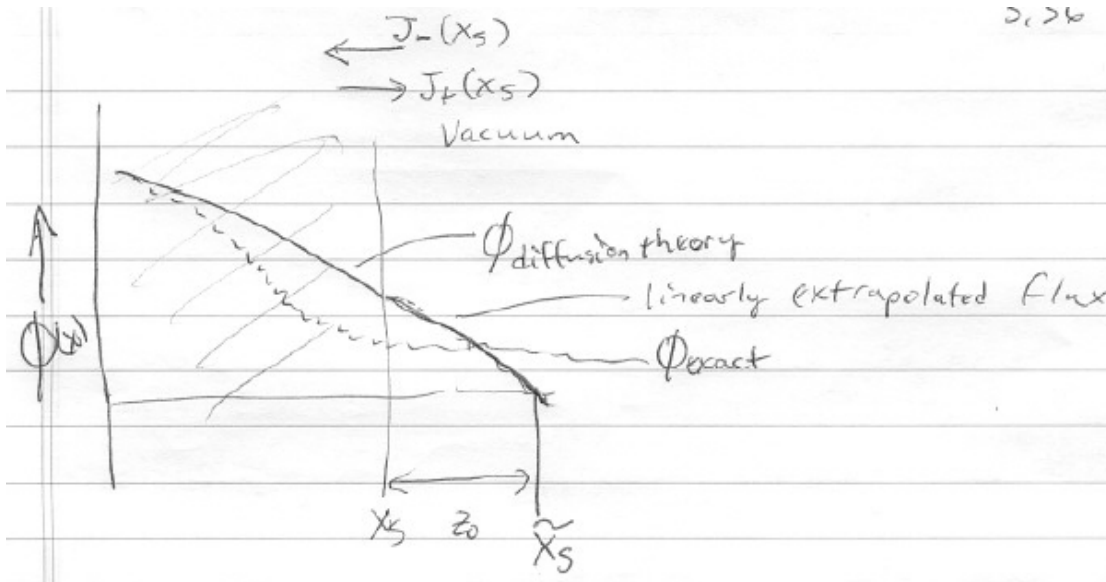 J-(xs)
J+(xs)
Vacuum
ϕdiffusion theory
linearly extrapolated flux
ϕ(x)
ϕexact
xs z0 x̃s